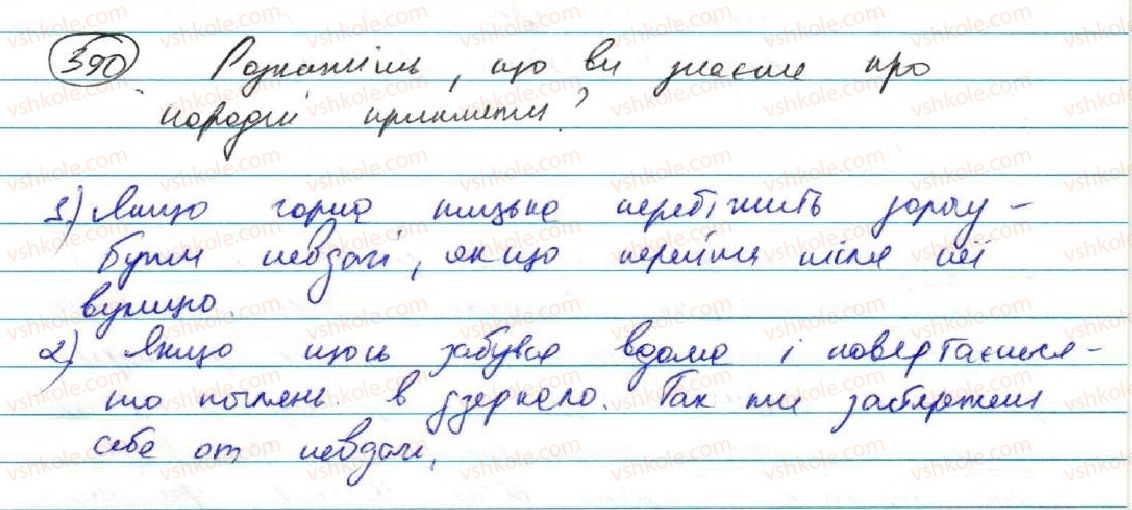 390 Розкажіть, що ви знаєте про
народні прикмети?
1) Якщо чорна кицька перебіжить дорогу -
бути невдачі, якщо перейти після неї
вулицю.
2) Якщо щось забувся вдома і повертаєшся -
то поглянь в дзеркало. Так ти застережеш
себе от невдачі.